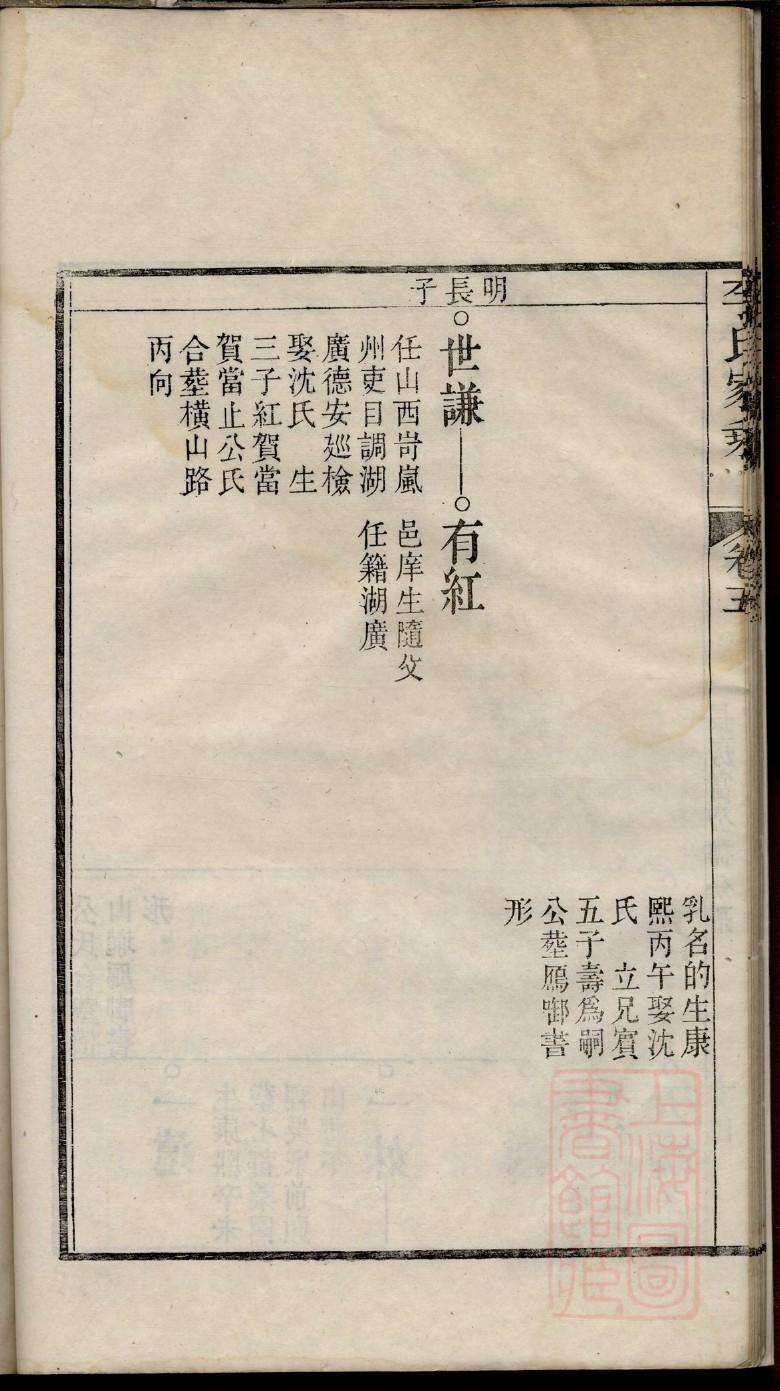 李氏家乘
卷五
乳名的生康
熙丙午娶沈
氏　立兄賓
五子壽爲嗣
公塟鴈啣書
形
明長子
世謙
任山西岢嵐
州吏目調湖
廣德安廵檢
娶沈氏　生
三子紅賀當
賀當止公氏
合塟橫山路
丙向
有紅
邑庠生隨父
任籍湖廣
上海圖
書館藏